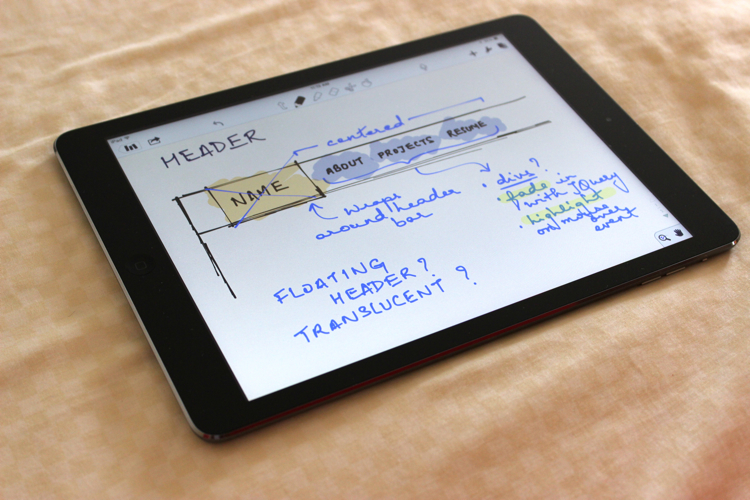 HEADER
centered
NAME
ABOUT PROJECTS RESUME
wraps
around/header
bar
• divs?
• fade in
with jQuery
• highlight
on mouse
over
event
FLOATING
HEADER?
TRANSLUCENT?